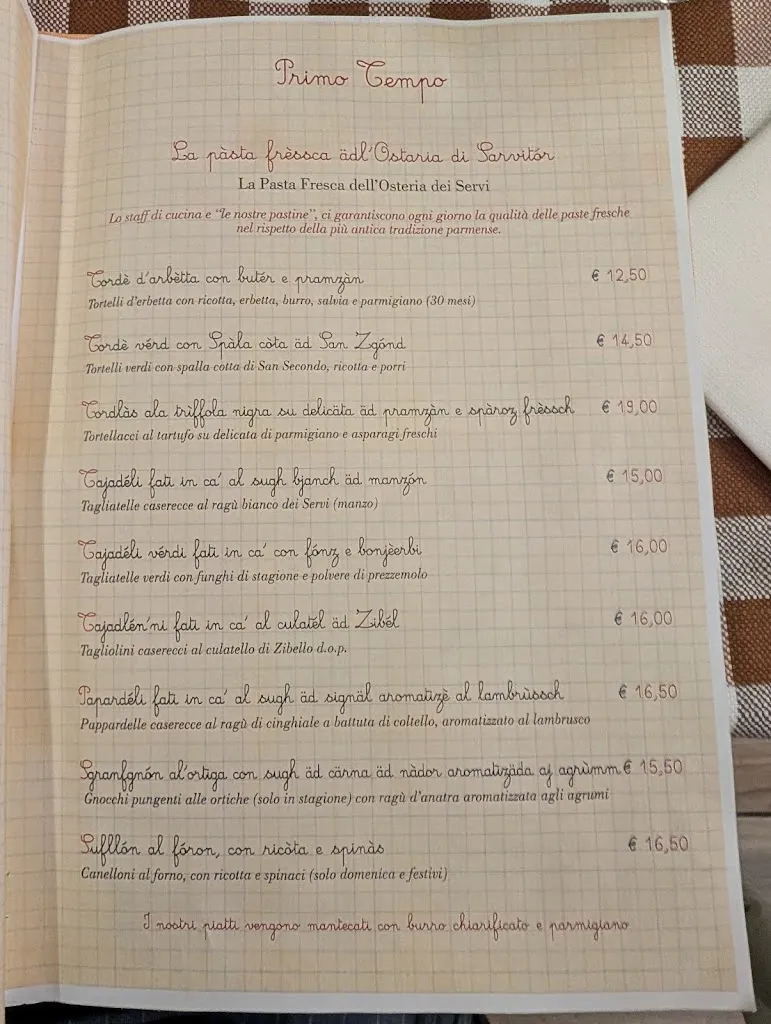 Primo Tempo
La pàsta frèssca ädl'Ostaria di Sarvitór
La Pasta Fresca dell'Osteria dei Servi
Lo staff di cucina e "le nostre pastine", ci garantiscono ogni giorno la qualità delle paste fresche
nel rispetto della più antica tradizione parmense.
Tordè d'arbètta con butér e pramzàn € 12,50
Tortelli d'erbetta con ricotta, erbetta, burro, salvia e parmigiano (30 mesi)
Tordè vérd con Spàla còta äd San Zgónd € 14,50
Tortelli verdi con spalla cotta di San Secondo, ricotta e porri
Tordlàs ala trìffola nigra su delicäta äd pramzàn e spàroz frèssch € 19,00
Tortellacci al tartufo su delicata di parmigiano e asparagi freschi
Tajadéli fati in ca' al sugh bjanch äd manzón € 15,00
Tagliatelle caserecce al ragù bianco dei Servi (manzo)
Tajadéli vérdi fati in ca' con fónz e bonjèerbi € 16,00
Tagliatelle verdi con funghi di stagione e polvere di prezzemolo
Tajadlén'ni fati in ca' al culatél äd Zibél € 16,00
Tagliolini caserecci al culatello di Zibello d.o.p.
Papardéli fati in ca' al sugh äd signäl aromatizè al lambrùssch € 16,50
Pappardelle caserecce al ragù di cinghiale a battuta di coltello, aromatizzato al lambrusco
Sgranfgnón al'ortiga con sugh äd cärna äd nàdor aromatizäda aj agrùmm € 15,50
Gnocchi pungenti alle ortiche (solo in stagione) con ragù d'anatra aromatizzata agli agrumi
Sufllón al fóron, con ricòta e spinàs € 16,50
Canelloni al forno, con ricotta e spinaci (solo domenica e festivi)
I nostri piatti vengono mantecati con burro chiarificato e parmigiano